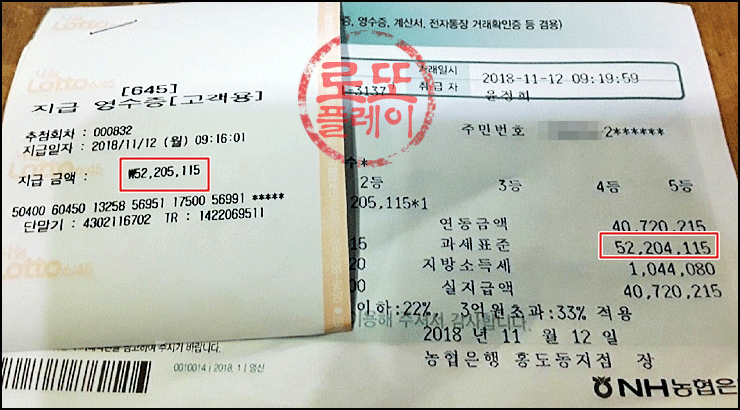 Lotto 6/45
[645]
지급 영수증[고객용]
추첨회차 : 000832
지급일자 : 2018/11/12 (월) 09:16:01
지급 금액 : ₩52,205,115
50400 60450 13258 56951 17500 56991 *****
단말기 : 4302116702 TR : 1422069511
로또
플레이
증, 영수증, 계산서, 전자통장 거래확인증 등 겸용)
거래일시 2018-11-12 09:19:59
*3137 취급자 윤정희
주민번호 2******
수*
2등 3등 4등 5등
205,115*1
연동금액 40,720,215
15 과세표준 52,204,115
20 지방소득세 1,044,080
00 실지급액 40,720,215
이하:22%, 3억원초과:33% 적용
이용해 주셔서 감사합니다.
2018 년 11 월 12 일
농협은행 홍도동지점 장
주시기 바랍니다.
0010014 ( 2018. 1 ) 영신
NH농협은